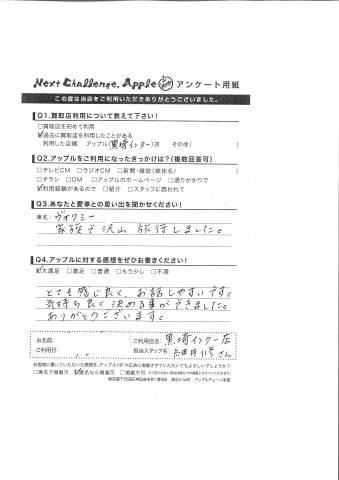 Next Challenge. Apple アンケート用紙
この度は当店をご利用いただきありがとうございました。
Q1.買取店利用について教えて下さい！
□買取店を初めて利用
☑過去に買取店を利用したことがある
利用した店舗: アップル(黒埼インター)店 その他( )
Q2.アップルをご利用になったきっかけは？(複数回答可)
□テレビCM □ラジオCM □新聞・雑誌(媒体名/ )
□チラシ □DM □アップルのホームページ □通りがかりで
☑利用経験があるので □紹介 □スタッフに誘われて
Q3.あなたと愛車との思い出を聞かせください！
車名: ヴォクシー
家族で沢山旅行しました。
Q4.アップルに対する感想をぜひお書きください！
☑大満足 □満足 □普通 □もう少し □不満
とても感じ良く、お話しやすいです。
気持ち良く決める事ができました。
ありがとうございます。
お名前:
ご利用店名: 黒埼インター店
ご利用日:
担当スタッフ名: さん
お客様に書いていただいた感想を、アップルHPや広告に掲載させていただいてもよろしいでしょうか？
□実名で掲載可 ☑仮名なら掲載可 □掲載不可